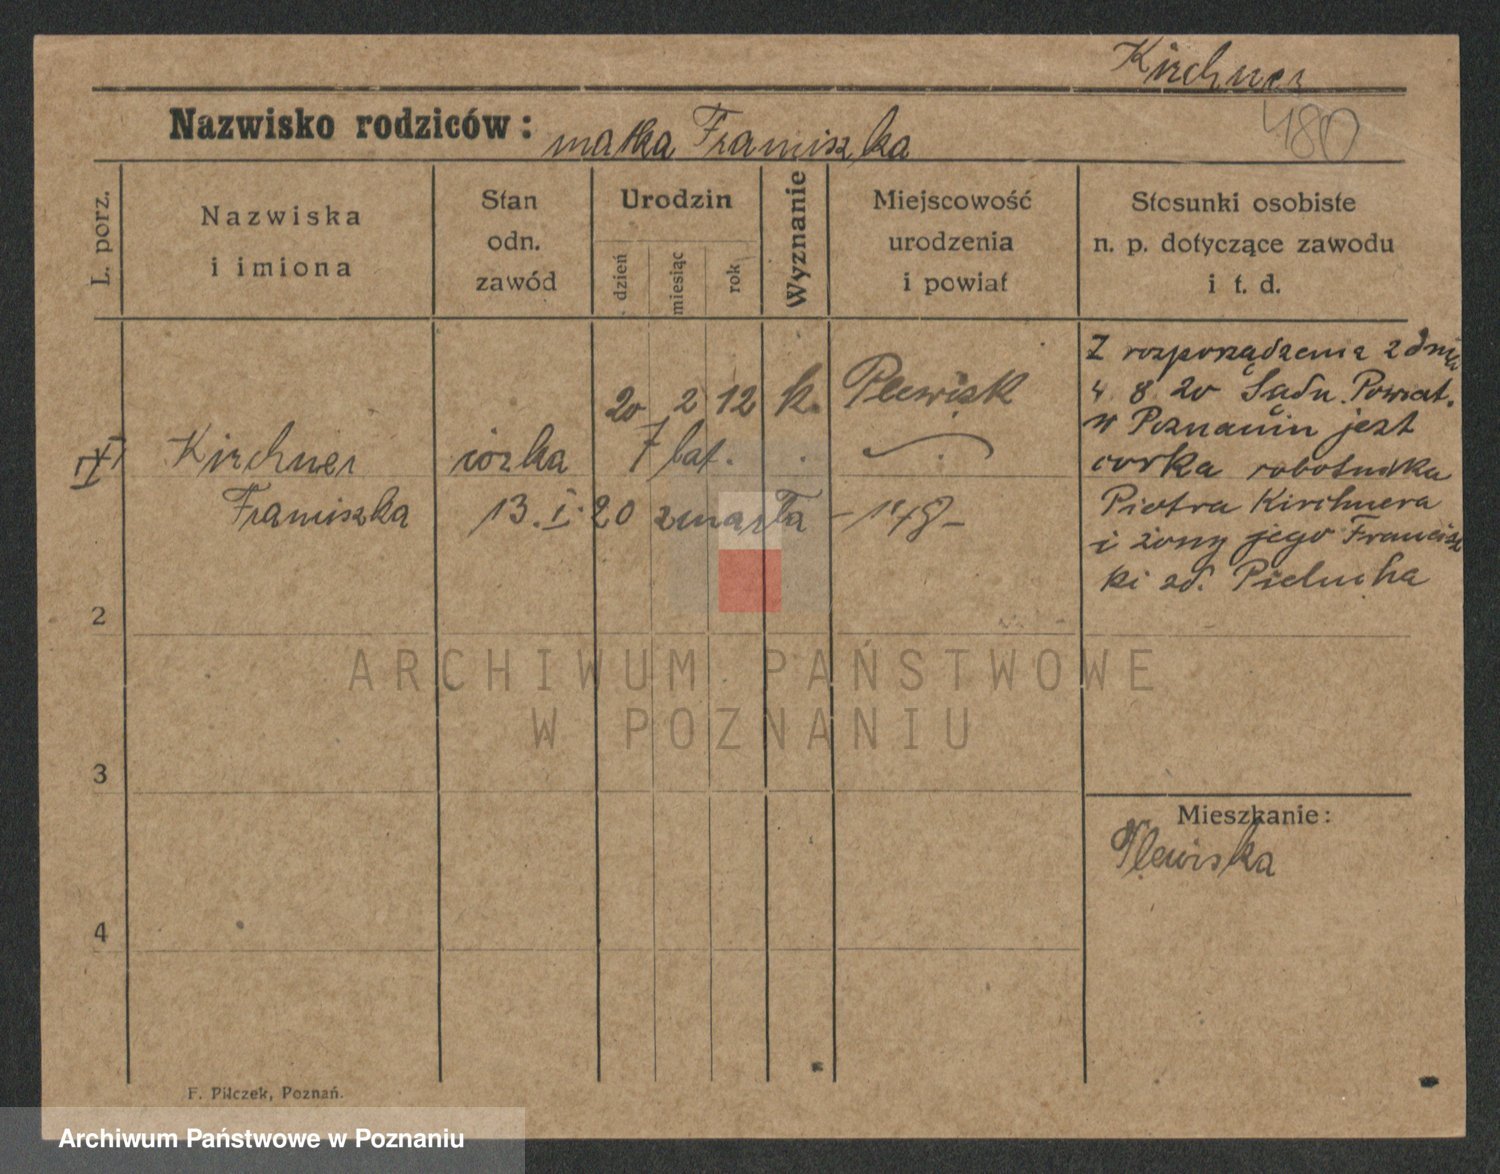 Kirchner
480
Nazwisko rodziców: matka Franciszka
L. porz.
Nazwiska
i imiona
Stan
odn.
zawód
Urodzin
dzień
miesiąc
rok
Wyznanie
Miejscowość
urodzenia
i powiat
Stosunki osobiste
n. p. dotyczące zawodu
i t. d.
20 2 12 k. Plewisk
Kirchner córka 7 lat.
Franciszka 13. I. 20 zmarła
Z rozporządzenia z dnia
4 8 20 Sądu Powiat.
w Poznaniu jest
córka robotnika
Piotra Kirchnera
i żony jego Francisz
ki zd. Pielucha
2
3
4
Mieszkanie:
Plewiska
F. Pilczek, Poznań.
ARCHIWUM PAŃSTWOWE
W POZNANIU
Archiwum Państwowe w Poznaniu